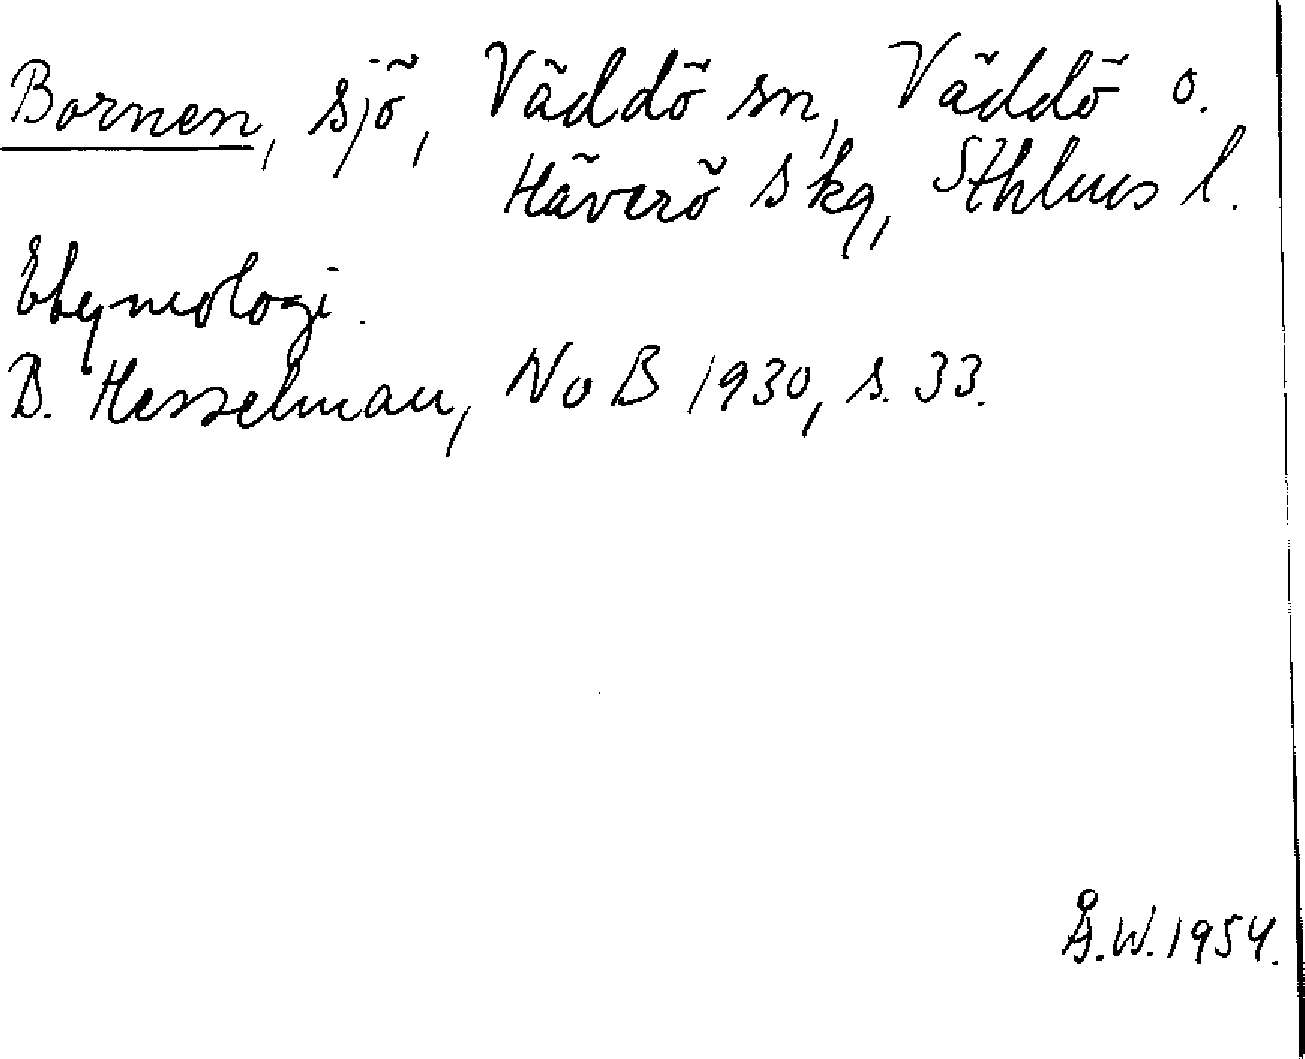 Bornen, sjö, Väddö sn, Väddö o.
Häverö skg, Sthlms l.
Etymologi.
B. Hesselman, NoB 1930, s. 33.
Å.W. 1954.